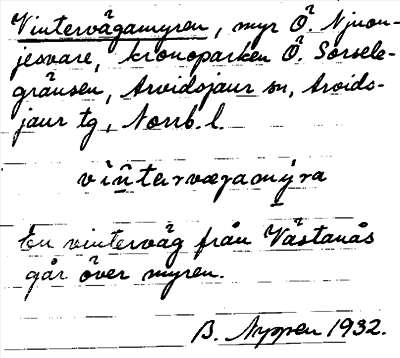 Vintervägamyren, myr Ö. Njuon-
jesvare, kronoparken Ö. Sorsele-
gränsen, Arvidsjaur sn, Arvids-
jaur tg, Norrb. l.
vintərvægamýra
En vinterväg från Västanås
går över myren.
B. 1932.